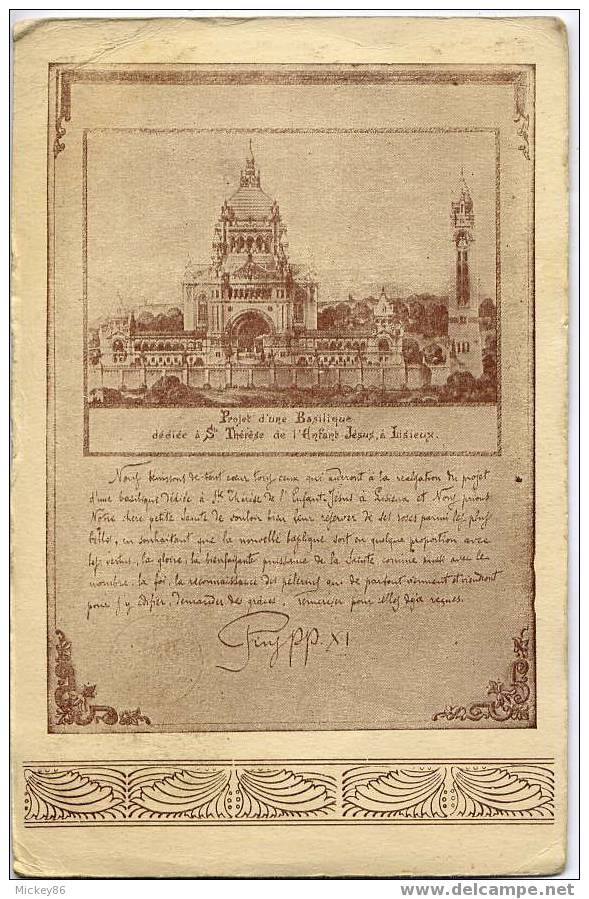 Projet d'une Basilique
dédiée à Ste Thérèse de l'Enfant Jésus, à Lisieux.
Nous bénissons de tout cœur tous ceux qui aideront à la réalisation du projet
d'une basilique dédiée à Ste Thérèse de l'Enfant-Jésus à Lisieux et Nous prions
Notre chère petite Sainte de vouloir bien leur réserver de ses roses parmi les plus
belles, en souhaitant que la nouvelle basilique soit en quelque proportion avec
les vertus, la gloire, la bienfaisante puissance de la Sainte comme aussi avec le
nombre, la foi, la reconnaissance des pèlerins qui de partout viennent et viendront
pour s'y édifier, demander des grâces, remercier pour celles déjà reçues.
Pius PP. XI
Mickey86
www.delcampe.net